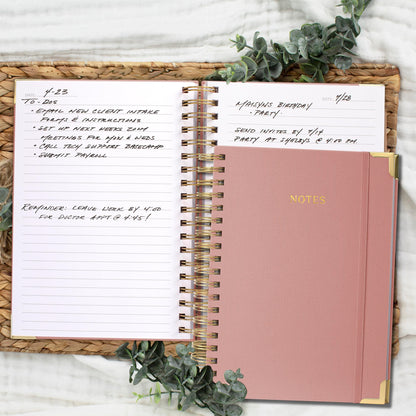 DATE 4-23
TO-DOS
• EMAIL NEW CLIENT INTAKE
FORMS & INSTRUCTIONS
• SET UP NEXT WEEKS ZOOM
MEETINGS FOR MON & WEDS.
• CALL TECH SUPPORT BASECAMP
• SUBMIT PAYROLL
REMINDER: LEAVE WORK BY 4:00
FOR DOCTOR APPT @ 4:45!
7/28
MAISYNS BIRTHDAY
• PARTY •
SEND INVITES BY 7/14
PARTY AT @ 4:00 PM
NOTES